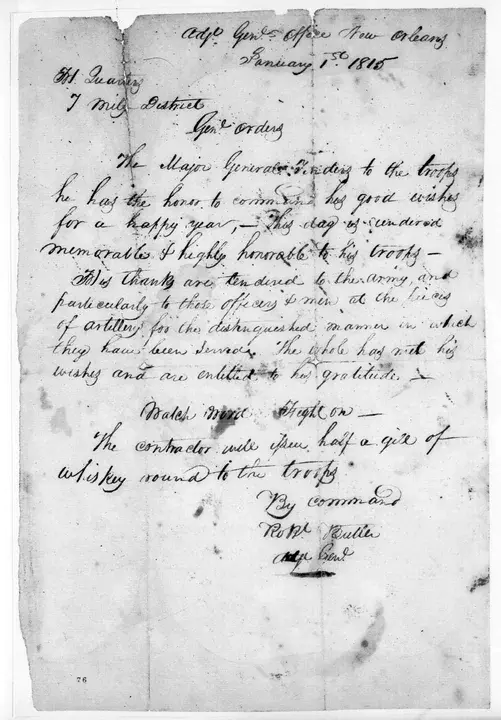 Adjt Genls Office New Orleans
January 1st 1815
Hd Quarters
7 Mily District
Genl Orders
The Major General Tenders to the troops
he has the honor to command his good wishes
for a happy year, – This day is rendered
memorable & highly honorable to his troops –
His thanks are tendered to the army, and
particularly to those officers & men at the pieces
of artillery for the distinguished manner in which
they have been served. The whole has met his
wishes and are entitled to his gratitude. –
Watch Word Fight on –
The contractor will issue half a gill of
whiskey round to the troops
By command
Robt. Butler
Adjt Genl.
76